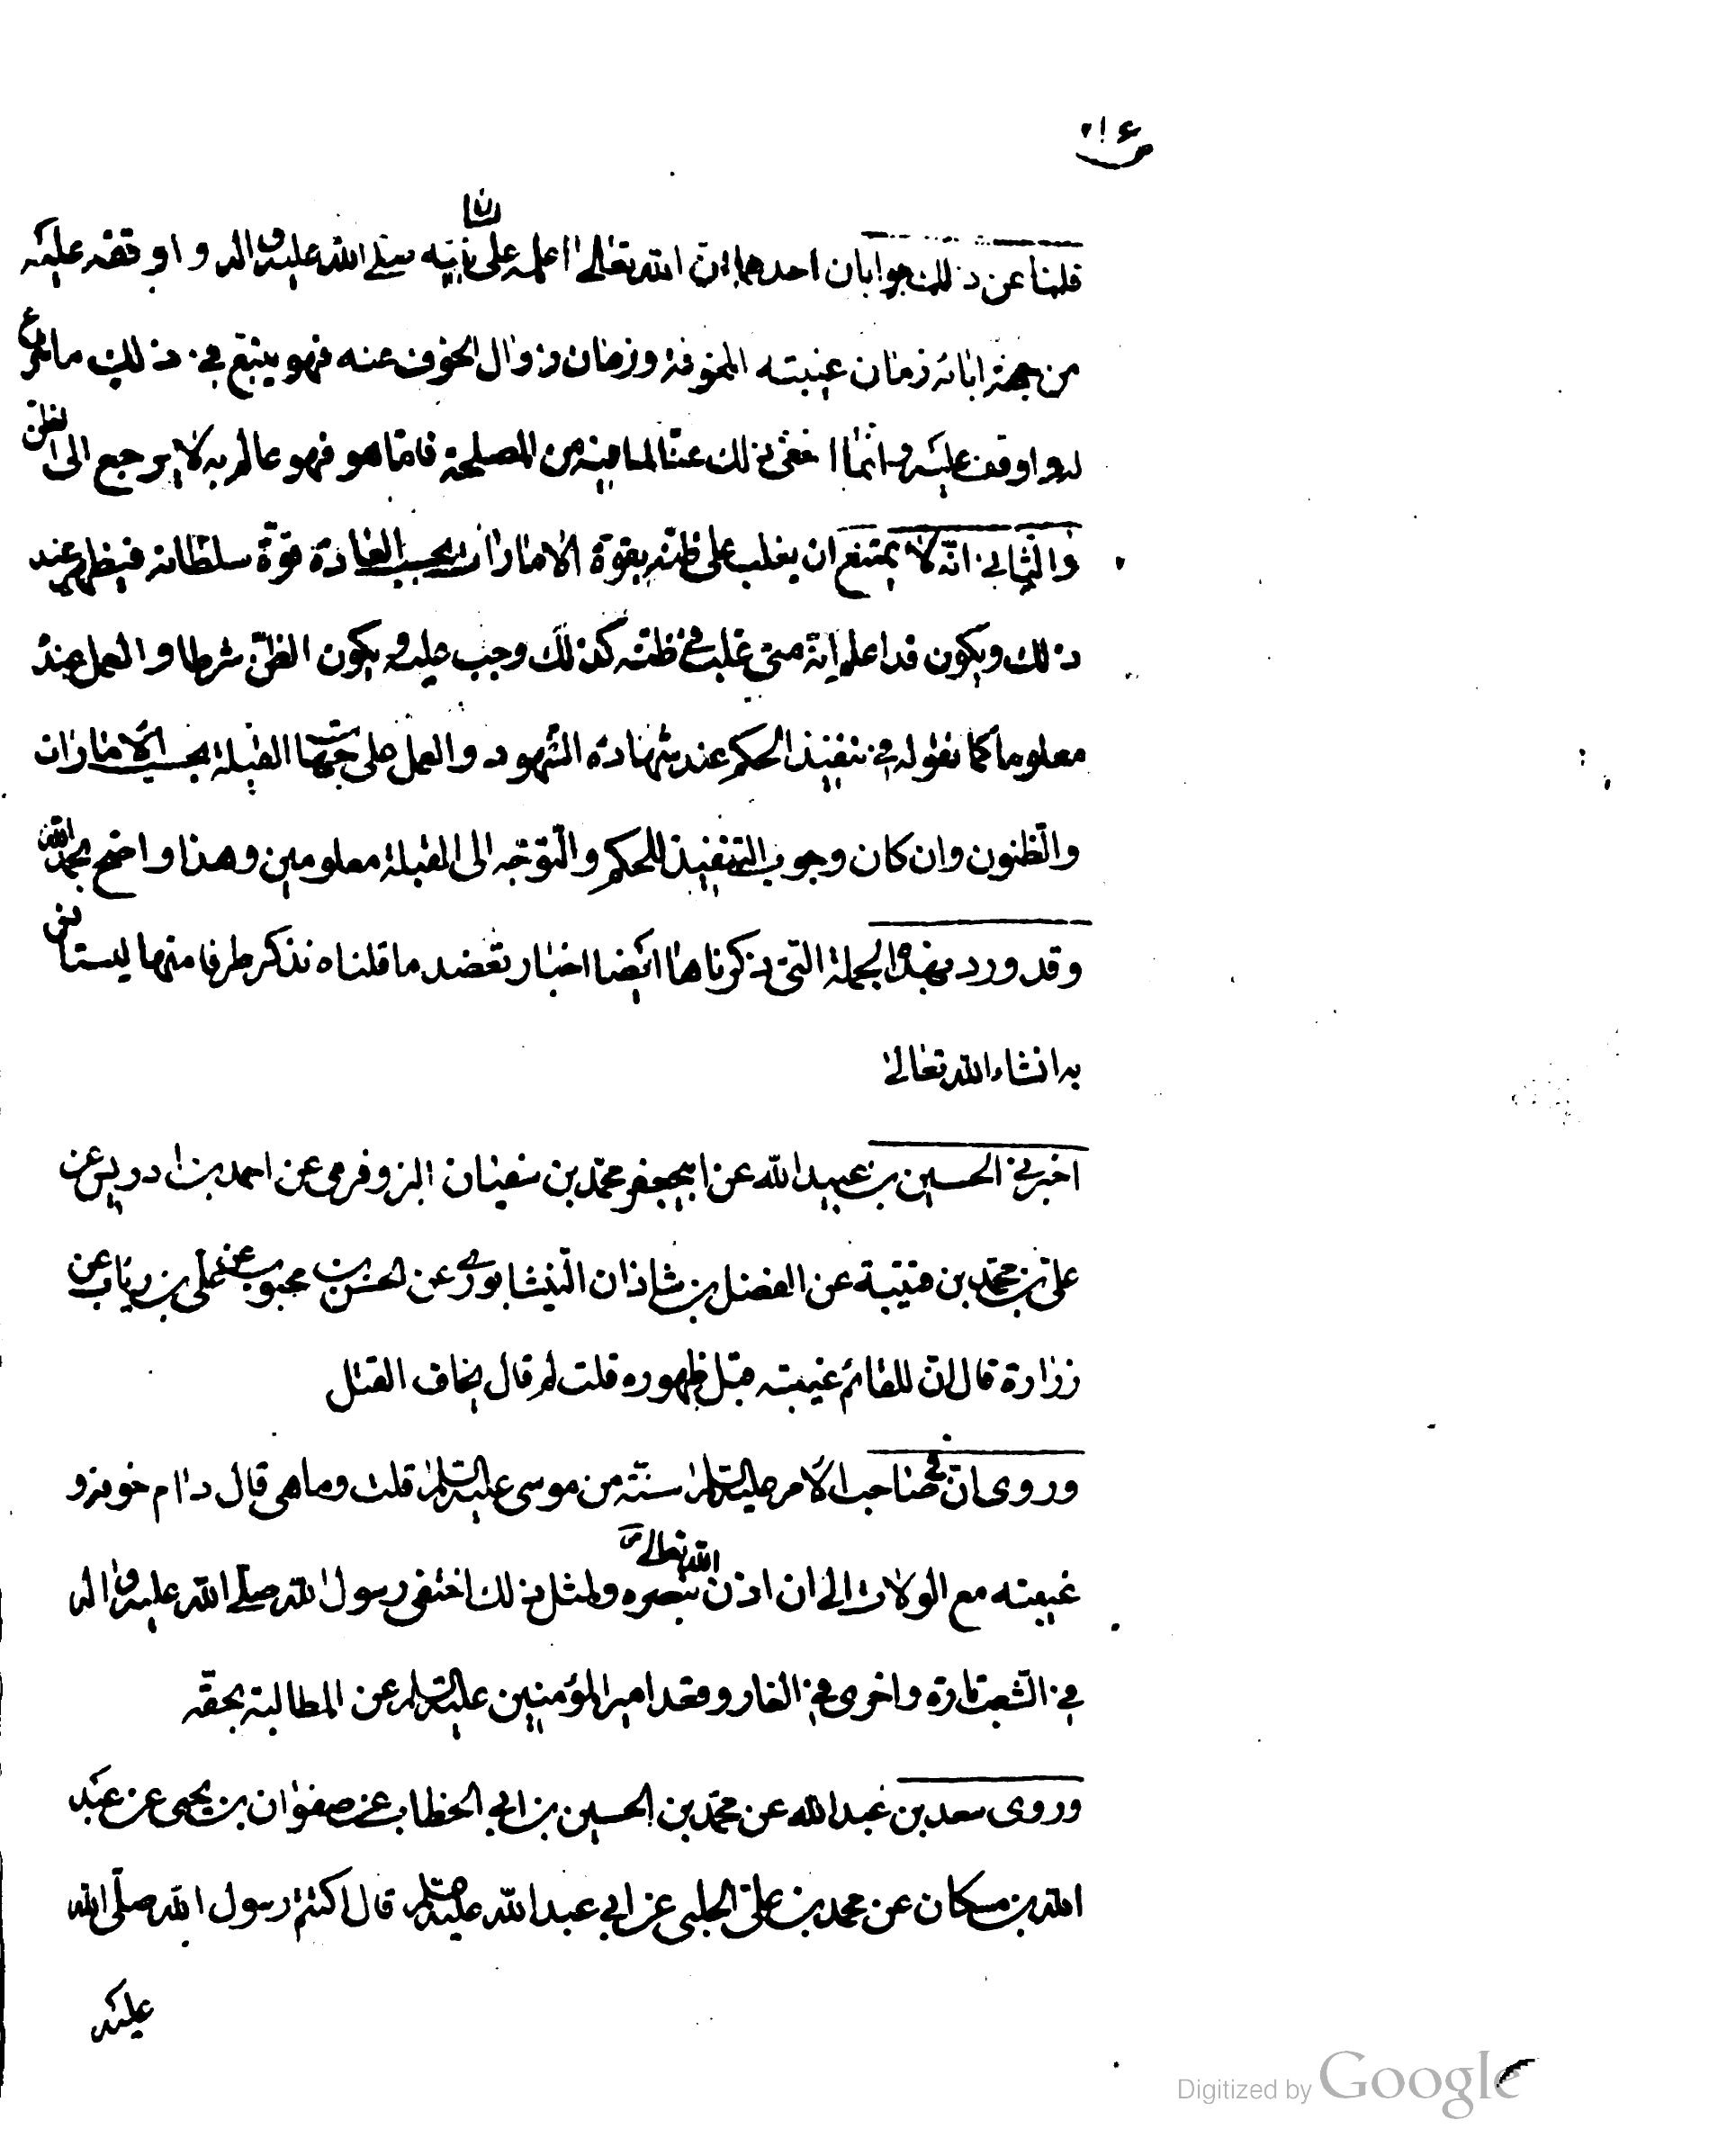 قلنا عن ذلك جوابان احدهما ان الله تعالى اعلمه على لسان نبيه صلى الله عليه واله و اوقفه عليه
من جهة ابائه زمان غيبته المخوفة وزمان زوال الخوف عنه فهو يتبع في ذلك ما شرع
له و اوقف عليه وانما اخفى ذلك عنا لما فيه من المصلحة فاما هو فهو عالم به لا يرجع الى الظن
والثاني انه لا يمتنع ان يغلب على ظنه بقوة الامارات بحسب العادة قوة سلطانه فيظهر عند
ذلك ويكون قد اعلم انه متى غلب في ظنه كذلك وجب عليه و يكون الظن شرطا و العمل عنده
معلوما كما نقوله في تنفيذ الحكم عند شهادة الشهود و العمل على جهات القبلة بحسب الامارات
والظنون وان كان وجوب التنفيذ للحكم والتوجه الى القبلة معلومين وهذا واضح بحمد الله
وقد ورد بهذه الجملة التي ذكرناها ايضا اخبار تعضد ما قلناه نذكر طرفا منها ليستانس
به انشاء الله تعالى
اخبرني الحسين بن عبيد الله عن ابيجعفر محمد بن سفيان البزوفري عن احمد بن ادريس عن
علي بن محمد بن قتيبة عن الفضل بن شاذان النيشابوري عن الحسن بن محبوب عن علي بن رياب عن
زرارة قال ان للقائم غيبته قبل ظهوره قلت لم قال يخاف القتل
وروى ان في صاحب الامر عليه السلام سنة من موسى عليه السلام قلت وما هي قال دام خوفه و
غيبته مع الولاة الى ان اذن الله تعالى بنصره ولمثل ذلك اختفى رسول الله صلى الله عليه واله
في الشعب تارة واخرى في الغار وقعد امير المؤمنين عليه السلام عن المطالبة بحقه
وروى سعد بن عبد الله عن محمد بن الحسين بن ابي الخطاب عن صفوان بن يحيى عن عبد
الله بن مسكان عن محمد بن علي الحلبي عن ابي عبد الله عليه السلم قال اكتتم رسول الله صلى الله
عليه
Digitized by Google